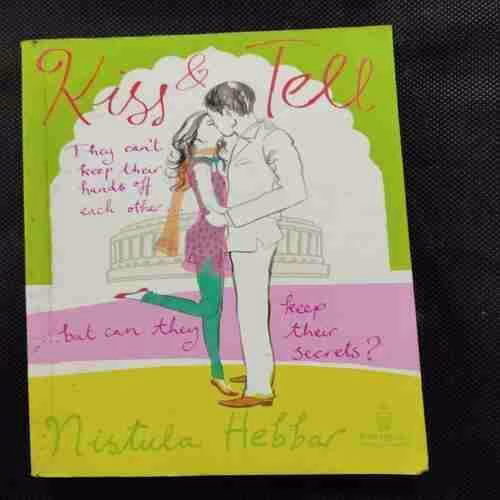 Kiss & Tell
They can't
keep their
hands off
each other...
...but can they
keep
their
secrets?
Nistula Hebbar